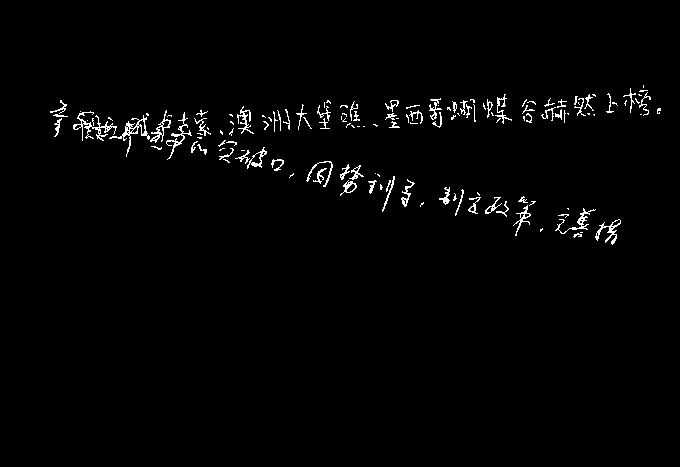 素、澳洲大堡礁、墨西哥蝴蝶谷赫然上榜。
突破口,因势利导,制定政策,完善措